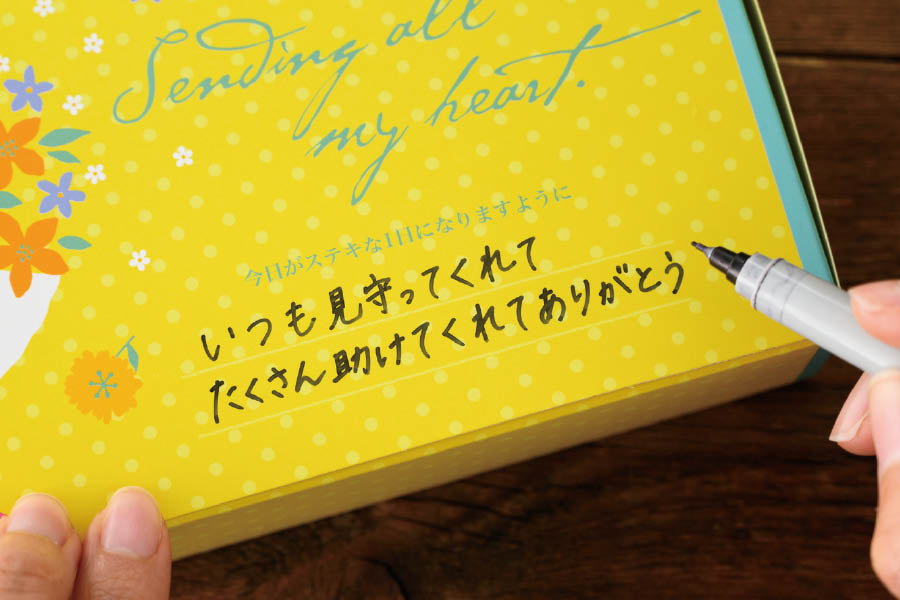 Sending all
my heart.
今日がステキな1日になりますように
いつも見守ってくれて
たくさん助けてくれてありがとう